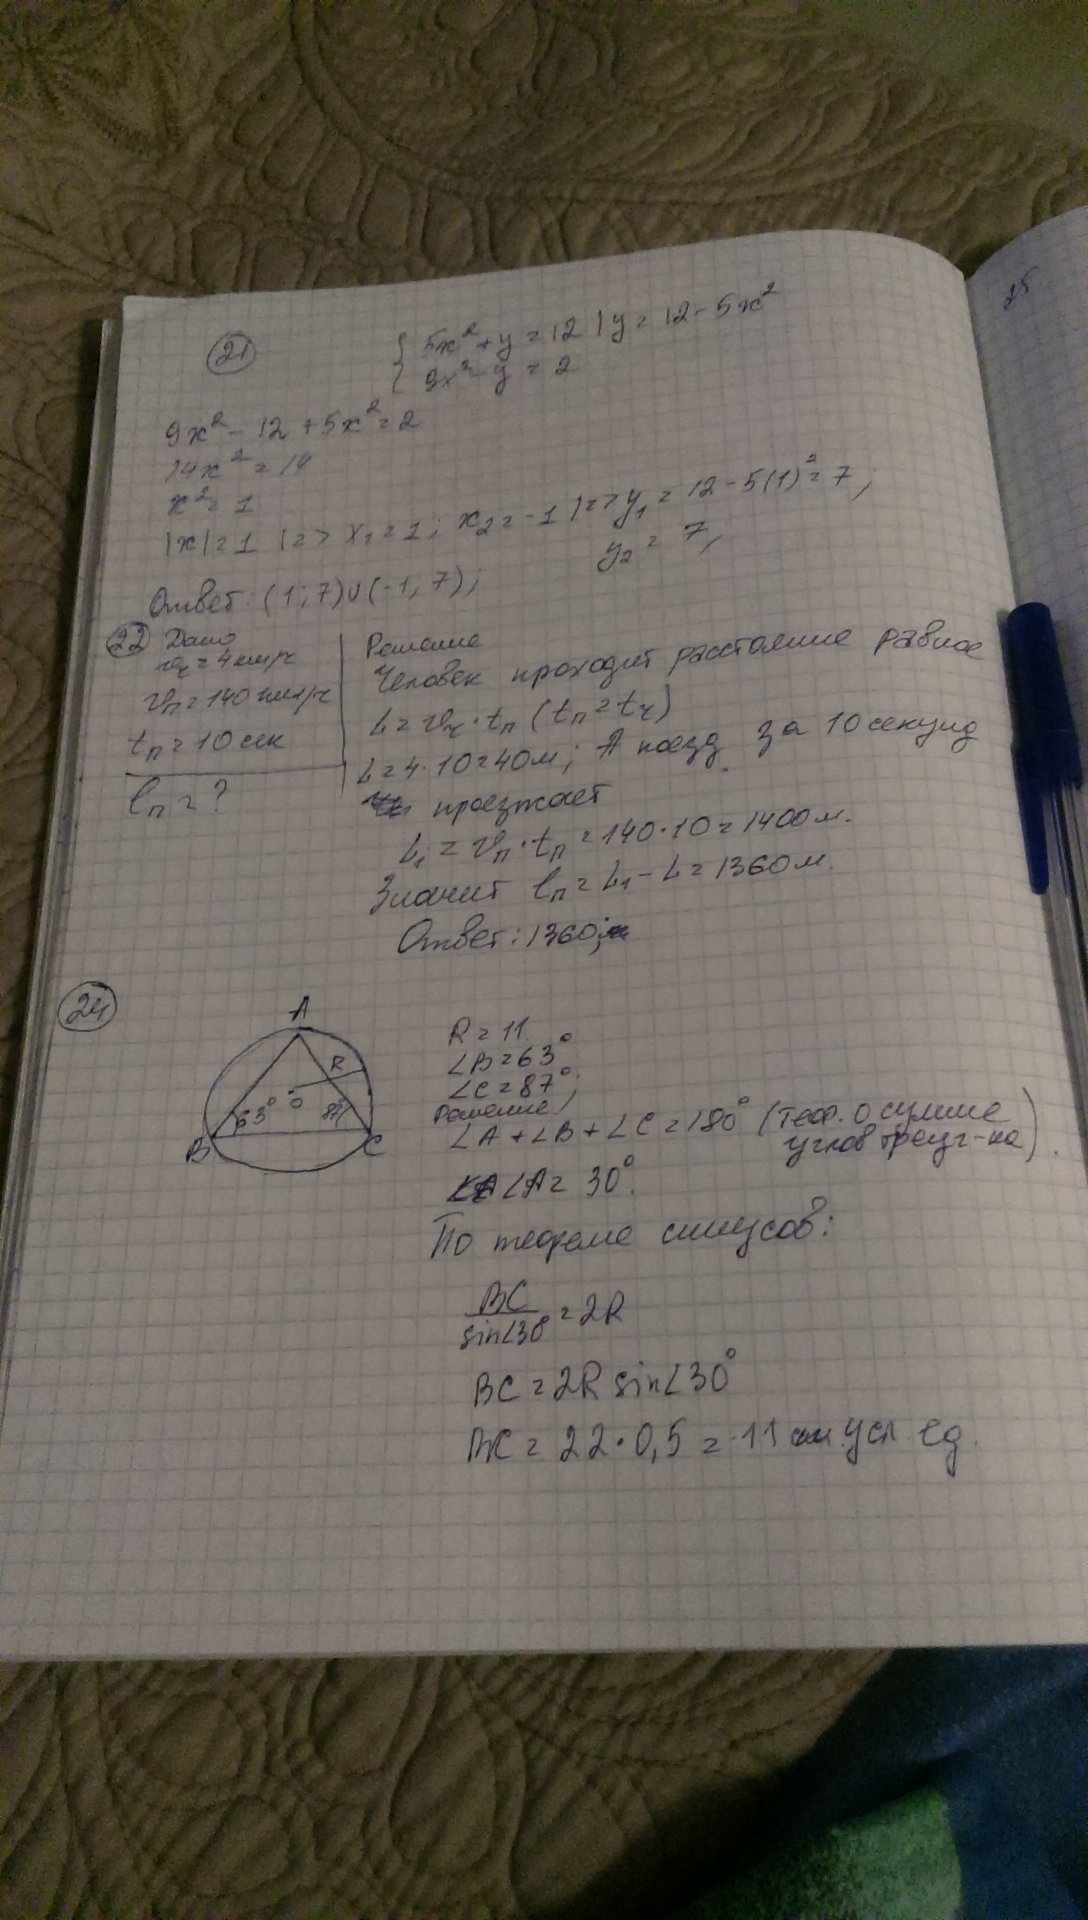 25
21
{ 5x² + y = 12 | y = 12 - 5x²
{ 9x² - y = 2
9x² - 12 + 5x² = 2
14x² = 14
x² = 1
|x| = 1 |=> x₁ = 1; x₂ = -1 |=> y₁ = 12 - 5(1)² = 7,
y₂ = 7,
Ответ: (1; 7)∪(-1, 7);
22 Дано
vч = 4 км/ч
vп = 140 км/ч
tп = 10 сек
lп = ?
Решение
Человек проходит расстояние равное
L = vч · tп (tп = tч)
L = 4 · 10 = 40 м; А поезд за 10 секунд
проезжает
L₁ = vп · tп = 140 · 10 = 1400 м.
Значит lп = L₁ - L = 1360 м.
Ответ: 1360;
24
A
R
63° O 87°
B C
R = 11
∠B = 63°
∠C = 87°;
Решение
∠A + ∠B + ∠C = 180° (теор. о сумме
углов треуг-ка).
∠A = 30°.
По теореме синусов:
BC
sin∠30° = 2R
BC = 2R sin∠30°
BC = 22 · 0,5 = 11 усл. ед.